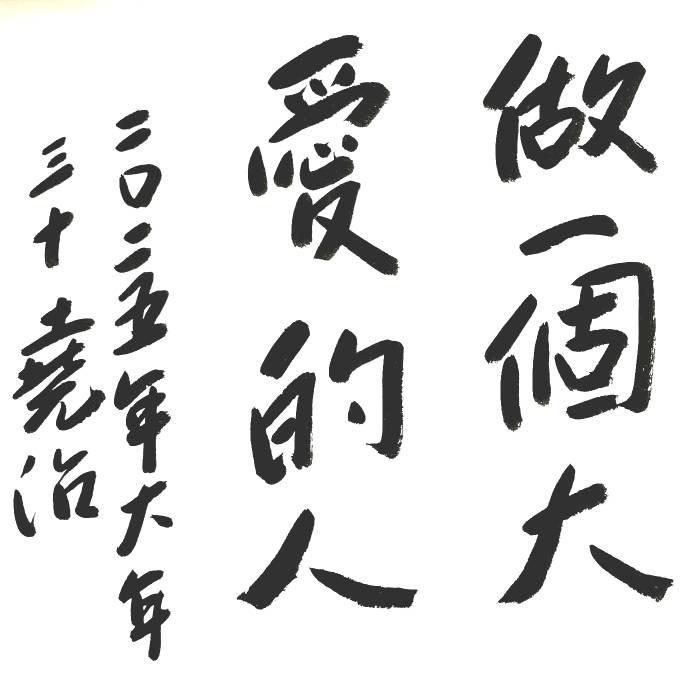 做一個大
愛的人
二〇二五年大年
三十 堯治